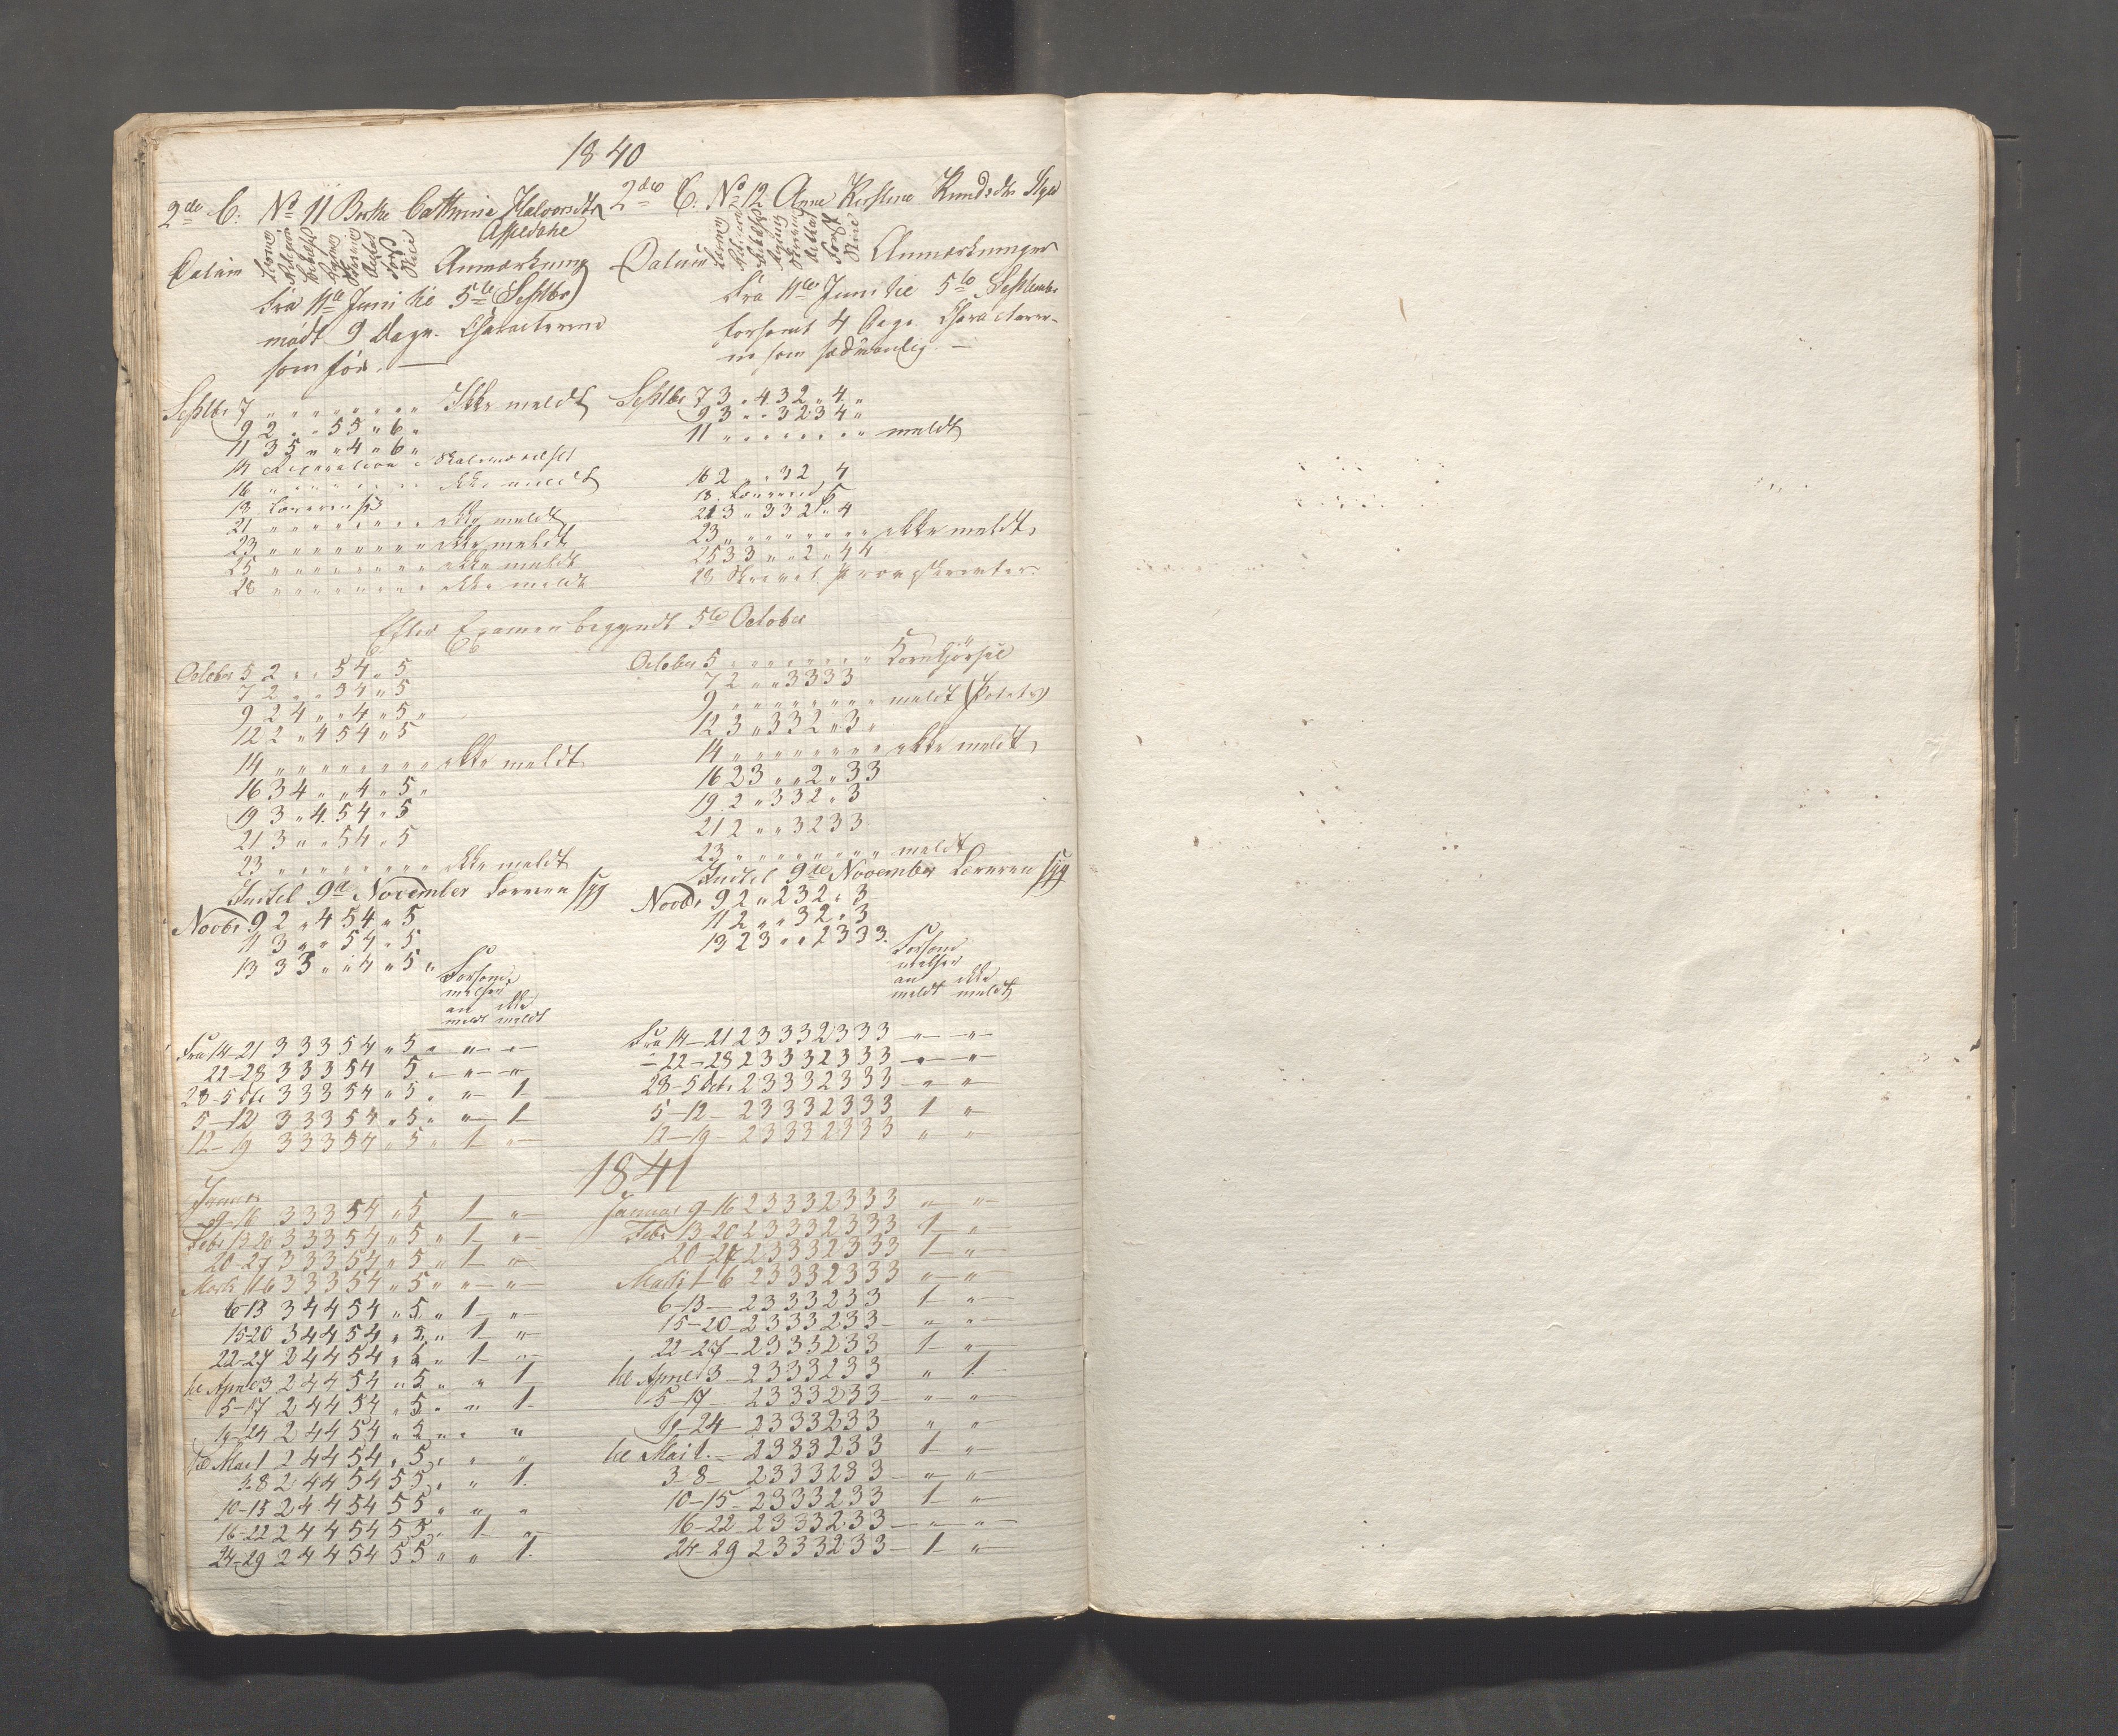 1840
2de C. No 11 Berthe Cathrine Halvorsdtr
Aspedahl
Datum Anmærkning
Fra 11te Juni til 5te Septbr
mødt 9 Dage. Characterne
som før. —
Septbr 7 " " " " " " " " Ikke meldt
9 2 " " 5 5 " 6 "
11 3 5 " " 4 " 6 "
14 Reparation i
16 " " " " " " " " ikke meldt
18 Læreren syg
21 " " " " " " " " ikke meldt
23 " " " " " " " " ikke meldt
25 " " " " " " " " ikke meldt
28 " " " " " " " " ikke meldt
Efter Examen begyndt 5te October
October 5 2 " " 5 4 " 5
7 2 " " 5 4 " 5
9 2 4 " " 4 " 5 "
12 2 " 4 5 4 " 5
14 " " " " " " " " ikke meldt
16 3 4 " " 4 " 5 "
19 3 " 4 5 4 " 5
21 3 " " 5 4 " 5
23 " " " " " " " " ikke meldt
Indtil 9de November Læreren syg
Novbr 9 2 " 4 5 4 " 5
11 3 " " 5 4 " 5
13 3 3 " " 4 " 5 "
Forsøm-
melser
an ikke
meldt meldt
Fra 14–21 3 3 3 5 4 " 5 " " — "
22–28 3 3 3 5 4 5 " " — "
28–5 Dcbr 3 3 3 5 4 " 5 " " — 1
5–12 3 3 3 5 4 " 5 " " — 1
12–19 3 3 3 5 4 " 5 " 1 — "
Januar
9–16 3 3 3 5 4 " 5 1 — "
Febr 13–20 3 3 3 5 4 " 5 " 1 — "
20–27 3 3 3 5 4 " 5 " 1 — "
Marts 1–6 3 3 3 5 4 " 5 " " — "
6–13 3 4 4 5 4 " 5 " 1 — "
15–20 3 4 4 5 4 " 5 " 1 — "
22–27 2 4 4 5 4 " 5 " 1 — "
til April 3 2 4 4 5 4 " 5 " " 1
5–17 2 4 4 5 4 " 5 " " 1
19–24 2 4 4 5 4 " 5 " " "
til Mai 1 2 4 4 5 4 " 5 " " "
3–8 2 4 4 5 4 5 5 " " 1
10–15 2 4 4 5 4 5 5 " " "
16–22 2 4 4 5 4 5 5 " 1 "
24–29 2 4 4 5 4 5 5 " " 1
2de C. No 12 Anne Kirstine Knudsdtr
Datum Anmærkninger
Fra 11te Juni til 5te Septembr
forsømt 4 Dage. Characterer-
ne som sædvanlig. —
Septbr 7 3 " 4 3 2 " 4 "
9 3 " " 3 2 3 4 "
11 " " " " " " " " meldt
16 2 " " 3 2 " 4
18 Læreren syg
21 3 " 3 3 2 " 4
23 " " " " " " " " ikke meldt
25 3 3 " " 2 " 4 4
28 Skrevet Prøveskrivter
October 5 " " " " " " " " Kornkjørsel
7 2 " " 3 3 3 3
9 " " " " " " " " meldt (Potets)
12 3 " 3 3 2 " 3 "
14 " " " " " " " " ikke meldt
16 2 3 " " 2 " 3 3
19 2 " 3 3 2 " 3
21 2 " " 3 2 3 3
23 " " " " " " " " meldt
Indtil 9de November Læreren syg
Novbr 9 2 " 2 3 2 " 3
11 2 " " 3 2 " 3
13 2 3 " " 2 3 3 3
Forsøm-
melser
an ikke
meldt meldt
Fra 14–21 2 3 3 3 2 3 3 3 — " — "
– 22–28 2 3 3 3 2 3 3 3 — " — "
28–5 Dcbr 2 3 3 3 2 3 3 3 — " — "
5–12 – 2 3 3 3 2 3 3 3 1 "
12–19 – 2 3 3 3 2 3 3 3 " "
1841
Januar 9–16 2 3 3 3 2 3 3 3 " "
Febr 13–20 2 3 3 3 2 3 3 3 1 — "
20–27 2 3 3 3 2 3 3 3 1 — "
Marts 1–6 2 3 3 3 2 3 3 3 " — "
6–13 — 2 3 3 3 2 3 3 1 "
15–20 – 2 3 3 3 2 3 3 — " "
22–27 – 2 3 3 3 2 3 3 1 "
til April 3 – 2 3 3 3 2 3 3 " 1
5–17 2 3 3 3 2 3 3 — " "
19–24 – 2 3 3 3 2 3 3 " "
til Mai 1. – 2 3 3 3 2 3 3 1 "
3–8 – 2 3 3 3 2 3 3 — " — "
10–15 – 2 3 3 3 2 3 3 1 "
16–22 2 3 3 3 2 3 3 — " "
24–29 2 3 3 3 2 3 3 – 1 — "